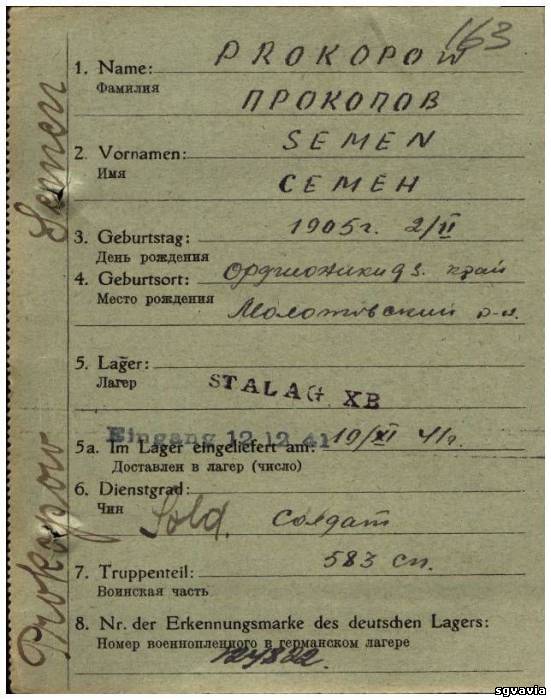 163
PROKOPOW
1. Name:
Фамилия
ПРОКОПОВ
SEMEN
2. Vornamen:
Имя
СЕМЕН
1905г. 2/II
3. Geburtstag:
День рождения
4. Geburtsort: Орджоникидз. край
Место рождения
Молотовский р-н.
5. Lager:
Лагер
STALAG XB
Eingang 12.12.41
5a. Im Lager eingeliefert am: 10/XI 41г.
Доставлен в лагер (число)
6. Dienstgrad:
Чин
Sold. солдат
583 сп.
7. Truppenteil:
Воинская часть
8. Nr. der Erkennungsmarke des deutschen Lagers:
Номер военнопленного в германском лагере
Prokopow Semen
sgvavia